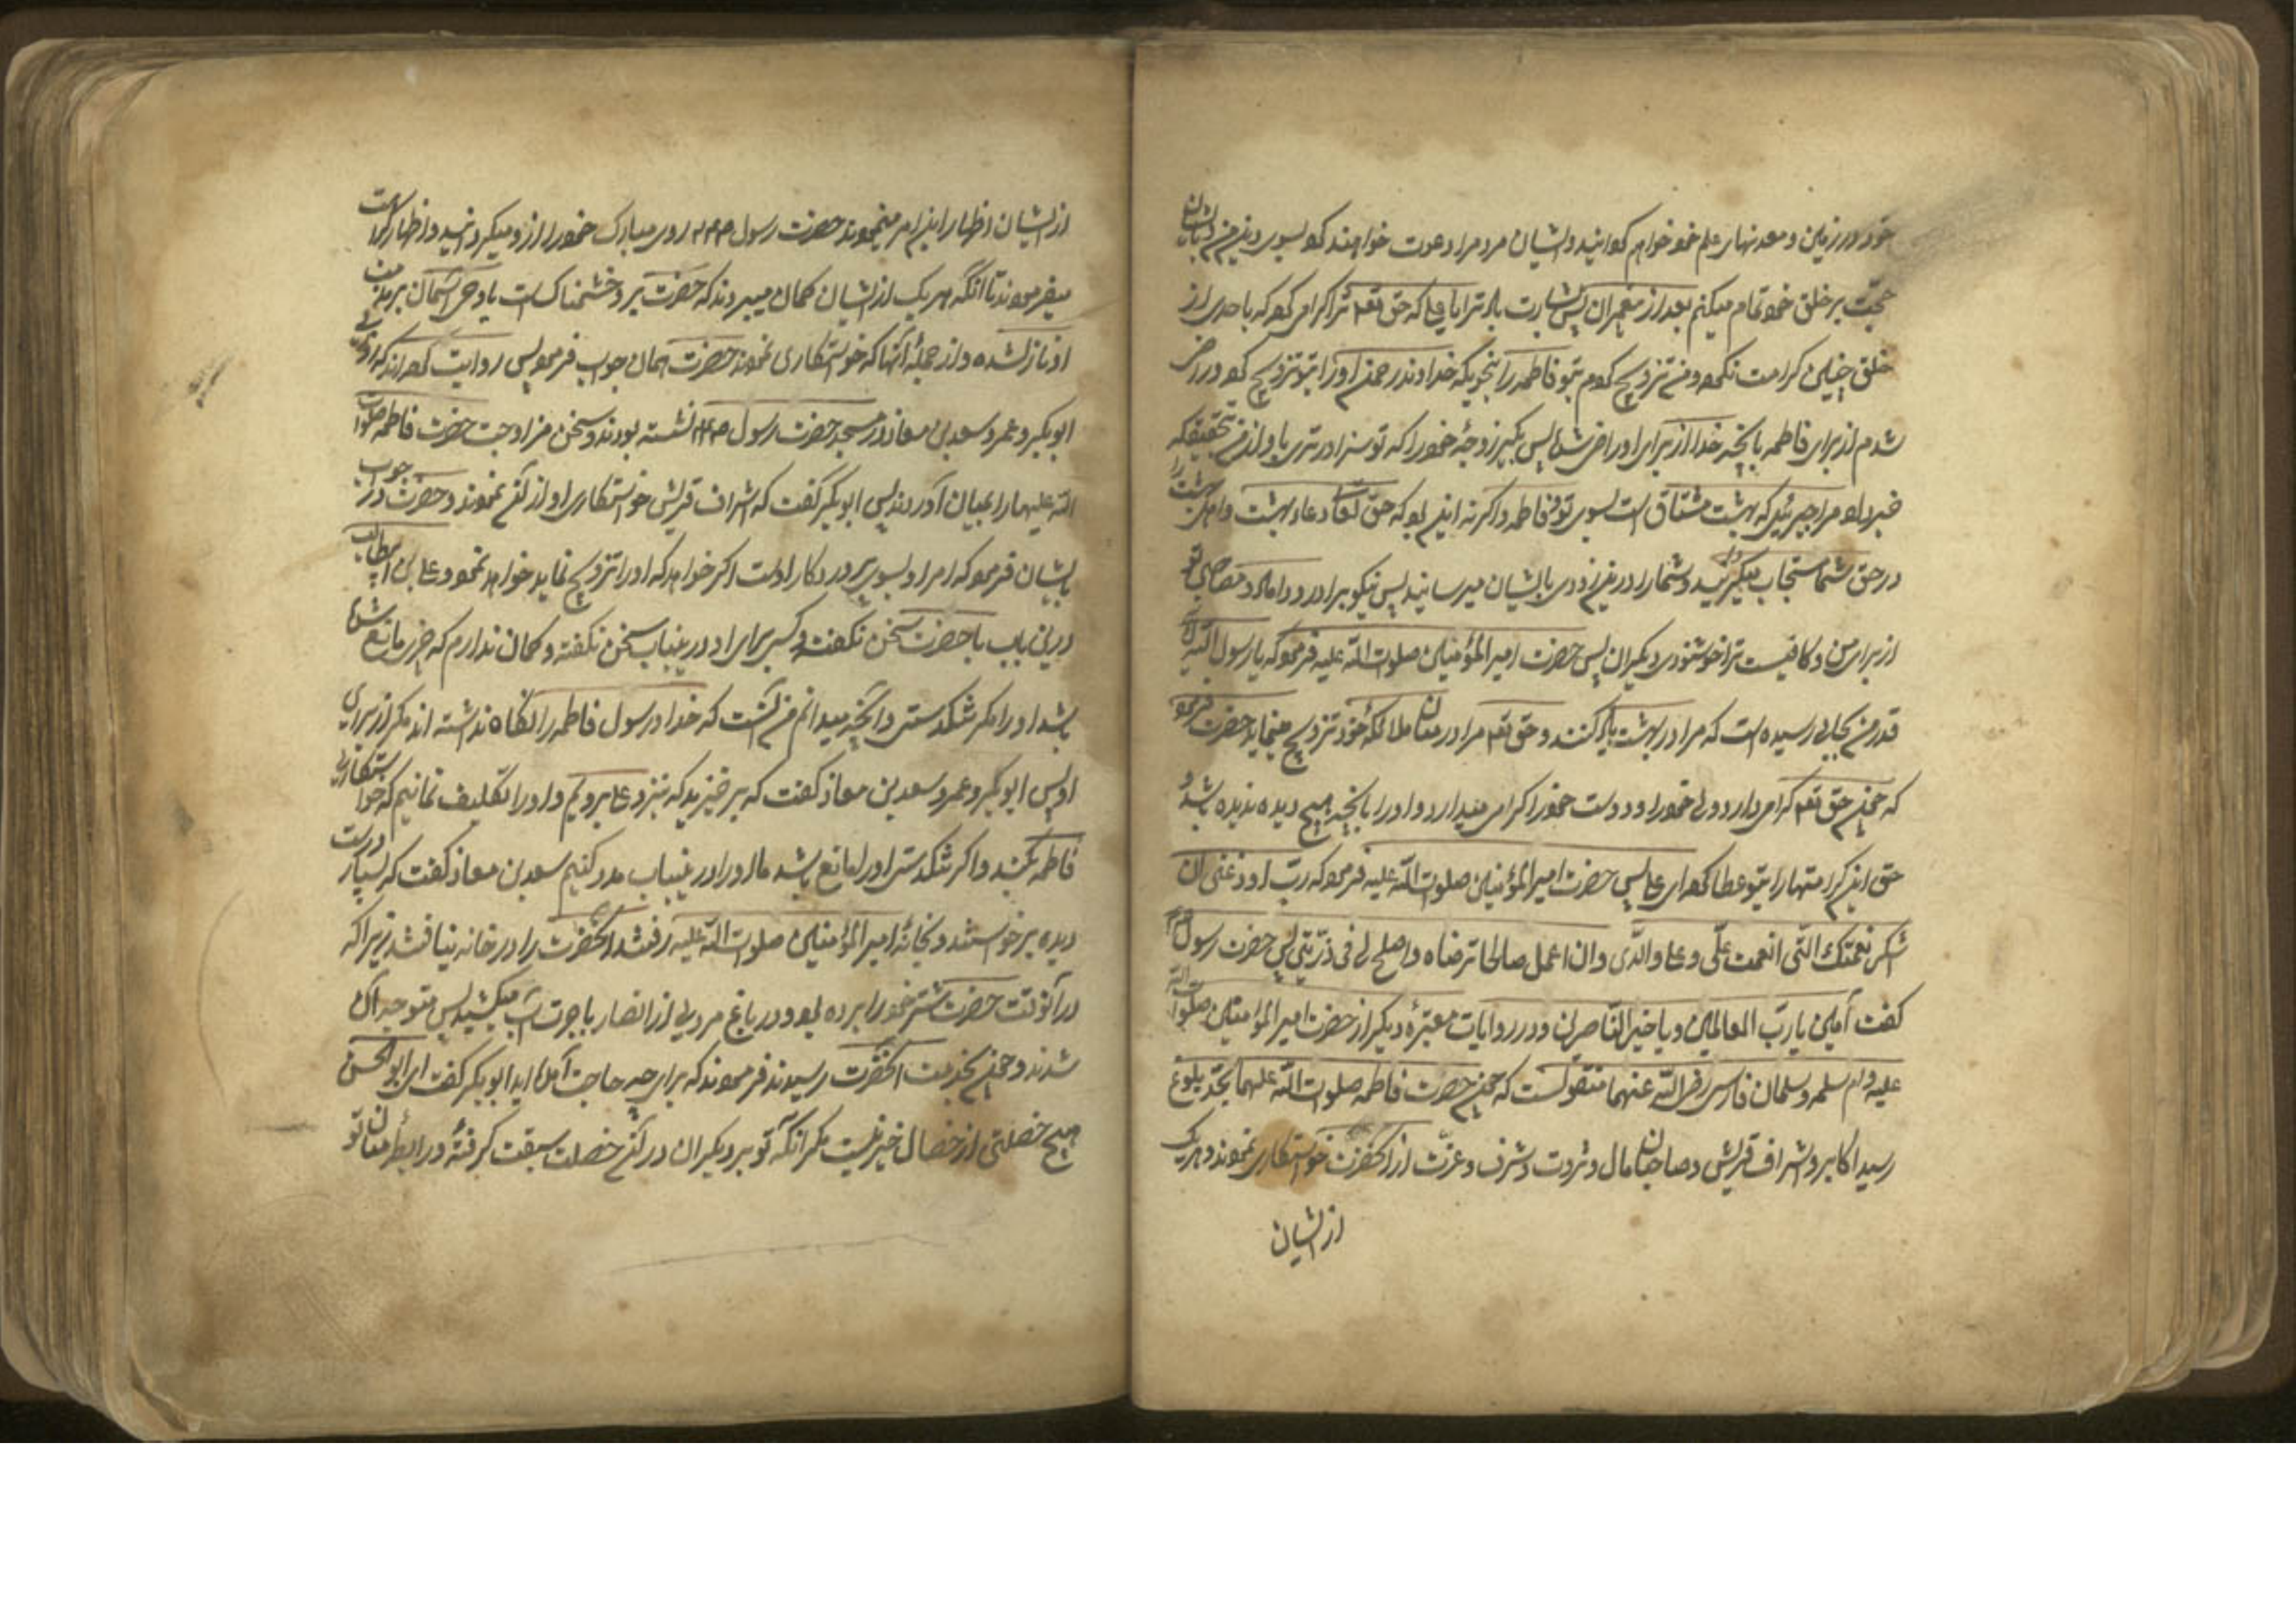 خود در زمین و معدنهای علم خود خواهم گردانید و ایشان مردمرا دعوت خواهند کرد بسوی دین من و بایشان
حجت بر خلق خود تمام میکنم بعد از پیغمبران پس بشارت باد ترا یا علی که حق تعم ترا کرامی کرد که باحدی از
خلق چنین کرامت نکرده و من تزویج کردم بتو فاطمه را بنحویکه خداوند رحمن او را بتو تزویج کرد و راضی
شدم از برای فاطمه بانچه خدا از برای او راضی شد پس بگیر زوجهٔ خود را که تو سزاوارتری باو از من بتحقیق که
خبر داد مرا جبرئیل که بهشت مشتاق است بسوی تو و فاطمه و اگر نه این بود که حق تعالی دعاء بهشت و اهل بهشت را
در حق شما مستجاب میگردانید و شما را در این زودی بایشان میرسانید پس نیکو برادر و داماد و مصاحبی تو
از برای من و کافیست ترا خوشنودی دیگران پس حضرت امیر المؤمنین صلوات الله علیه فرمود که یا رسول الله آیا
قدر من بجایی رسیده است که مرا در بهشت یاد کنند و حق تعم مرا در میان ملائکهٔ خود تزویج مینماید حضرت فرمود
که چون حق تعم کرامی دارد ولی خود را و دوست خود را کرامی میدارد او را بانچه هیچ دیده ندیده باشد و
حق این کرامتها را بتو عطا کرد ای علی پس حضرت امیر المؤمنین صلوات الله علیه فرمود که رب اوزعنی ان
اشکر نعمتک التی انعمت علی و علی والدی و ان اعمل صالحا ترضاه و اصلح لی فی ذریتی پس حضرت رسول صم
گفت آمین یا رب العالمین و یا خیر الناصرین و در روایات معتبرهٔ دیگر از حضرت امیر المؤمنین صلوات الله
علیه و ام سلمه و سلمان فارسی رضی الله عنهما منقولست که چون حضرت فاطمه صلوات الله علیها بحد بلوغ
رسید اکابر و اشراف قریش و صاحبان مال و ثروت و شرف و عزت از آنحضرت خواستکاری نمودند و هر یک
از ایشان
از ایشان اظهار این امر مینمودند حضرت رسول روی مبارک خود را از او میگردانید و اظهار کراهت
میفرمودند تا آنکه هر یک از ایشان گمان میبردند که حضرت بر او خشمناک است یا وحی آسمان بر مذمت
او نازل شده و از جملهٔ آنها که خواستکاری نمودند حضرت همان جواب فرمود پس روایت کرده اند که روزی
ابو بکر و عمر و سعد بن معاذ در مسجد حضرت رسول نشسته بودند و سخن مزاوجت حضرت فاطمه صلوات
الله علیها را بمیان آوردند پس ابو بکر گفت که اشراف قریش خواستکاری او از آنحضرت نمودند و حضرت در جواب
بایشان فرمود که امر او بسوی پروردگار اوست اگر خواهد که او را تزویج نماید خواهد نمود و علی بن ابی طالب
درین باب با حضرت سخن نگفت و کسی برای او درینباب سخن نگفته و گمان ندارم که چیزی مانع شده
باشد او را مگر تنگدستی و آنچه میدانم من آنست که خدا و رسول فاطمه را نگاه نداشته اند مگر از برای
او پس ابو بکر و عمر و سعد بن معاذ گفت که برخیزید که بنزد علی برویم و او را تکلیف نمائیم که خواستکاری
فاطمه بکند و اگر تنگدستی او را مانع باشد ما او را درینباب مدد کنیم سعد بن معاذ گفت که بسیار درست
دیده برخواستند و بخانهٔ امیر المؤمنین صلوات الله علیه رفتند آنحضرت را در خانه نیافتند زیرا که
در آنوقت حضرت شتر خود را برده بود و در باغ مردی از انصار باجرت آب میکشید پس متوجه آن
شدند و چون بخدمت آنحضرت رسیدند فرمودند که برای چه حاجت آمده اید ابو بکر گفت ای ابو الحسن
هیچ خصلتی از خصال خیر نیست مگر آنکه تو بر دیگران در آن خصلت سبقت گرفتهٔ و رابطهٔ میان تو